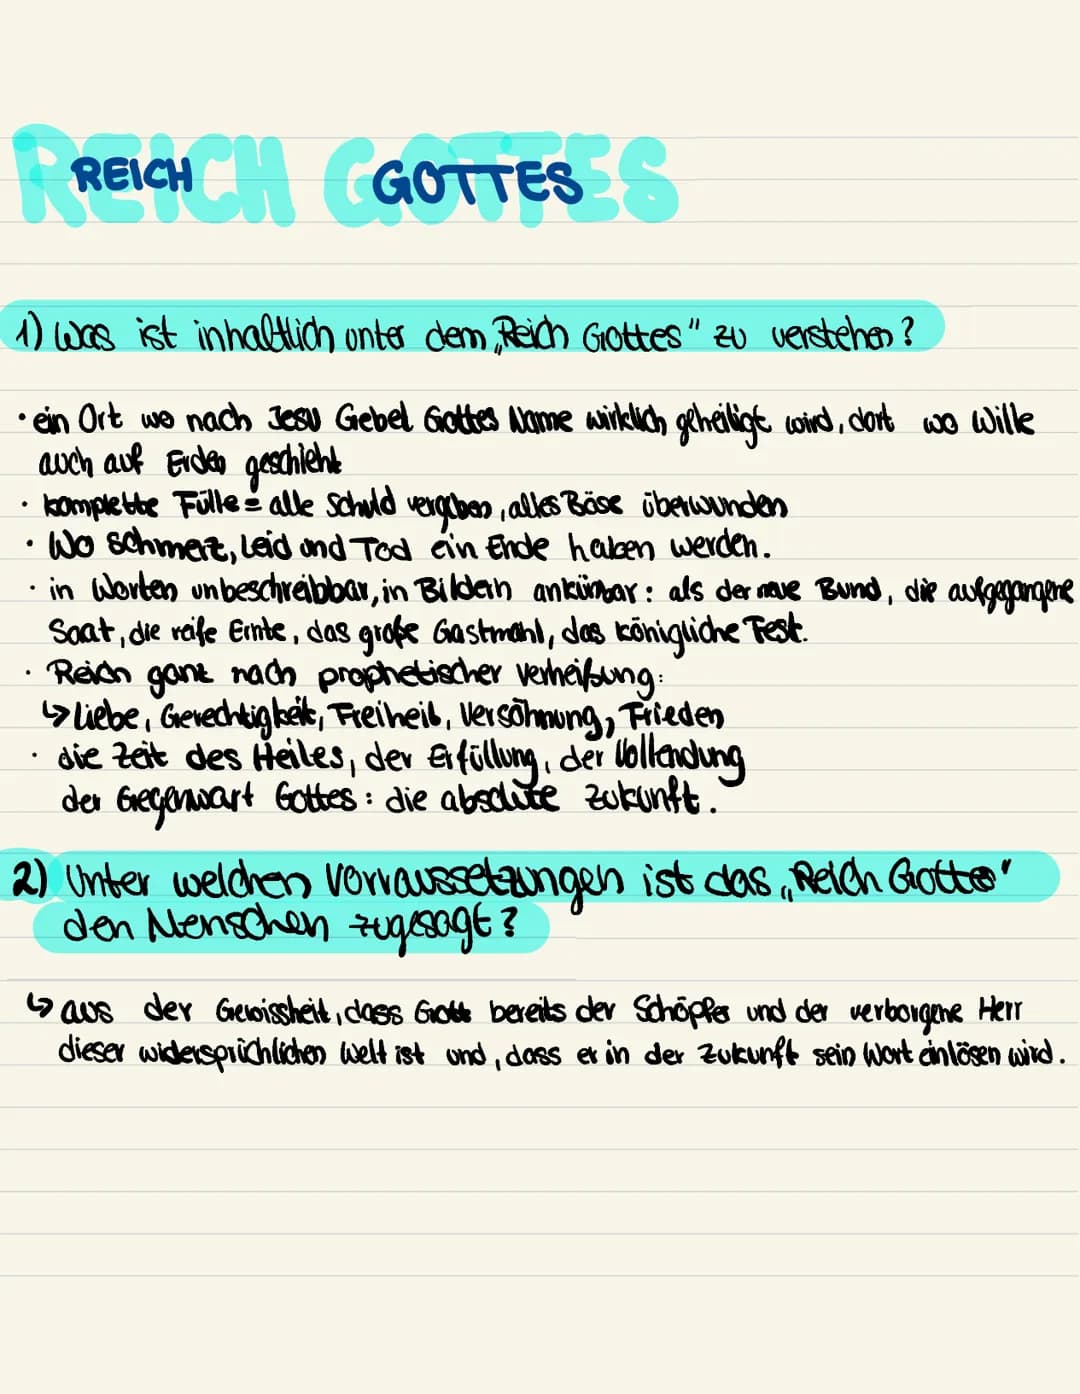 REICH GOTTES
REICH GOTTES
1) Was ist inhaltlich unter dem „Reich Gottes" zu verstehen?
• ein Ort wo nach Jesu Gebel Gottes Name wirklich geheiligt wird, dort wo Wille
auch auf Erden geschieht
• komplette Fülle = alle Schuld vergeben, alles Böse überwunden
• Wo Schmerz, Leid und Tod ein Ende haben werden.
• in Worten unbeschreibbar, in Bildern ankünbar: als der neue Bund, die aufgegangene
Saat, die reife Ernte, das große Gastmahl, das königliche Fest.
• Reich ganz nach prophetischer Verheißung:
↳ Liebe, Gerechtigkeit, Freiheit, Versöhnung, Frieden
• die Zeit des Heiles, der Erfüllung, der Vollendung
der Gegenwart Gottes: die absolute Zukunft.
2) Unter welchen Vorraussetzungen ist das „Reich Gottes"
den Menschen zugesagt?
↳ aus der Gewissheit, dass Gott bereits der Schöpfer und der verborgene Herr
dieser widersprüchlichen Welt ist und, dass er in der Zukunft sein Wort einlösen wird.